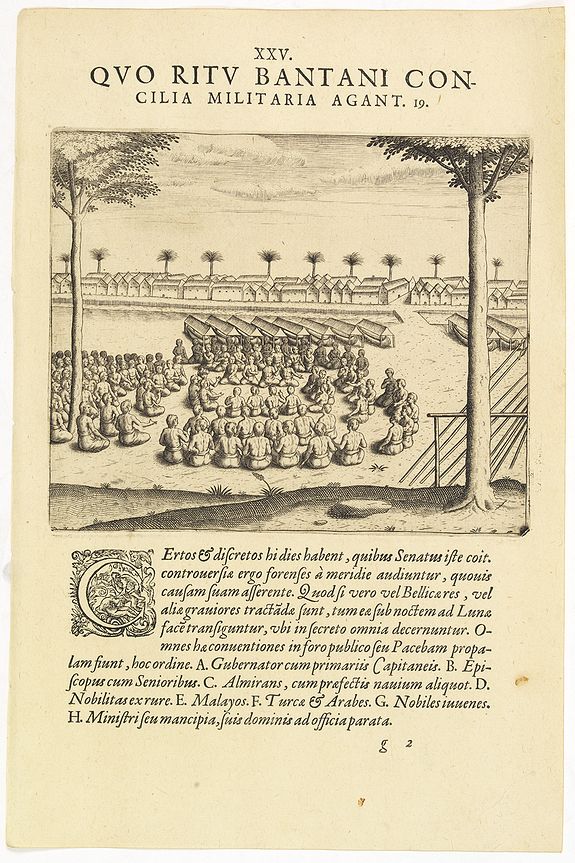 XXV.
QVO RITV BANTANI CON-
CILIA MILITARIA AGANT. 19.
CErtos & discretos hi dies habent, quibus Senatus iste coit.
controversiæ ergo forenses à meridie audiuntur, quouis
causam suam asserente. Quod si vero vel Bellicæ res, vel
aliæ grauiores tractãdæ sunt, tum eæ sub noctem ad Lunæ
facẽ transiguntur, vbi in secreto omnia decernuntur. O-
mnes hæ conuentiones in foro publico seu Pacebam propa-
lam fiunt, hoc ordine. A. Gubernator cum primariis Capitaneis. B. Epi-
scopus cum Senioribus. C. Almirans, cum præfectis nauium aliquot. D.
Nobilitas ex rure. E. Malayos. F. Turcæ & Arabes. G. Nobiles iuuenes.
H. Ministri seu mancipia, suis dominis ad officia parata.
g 2